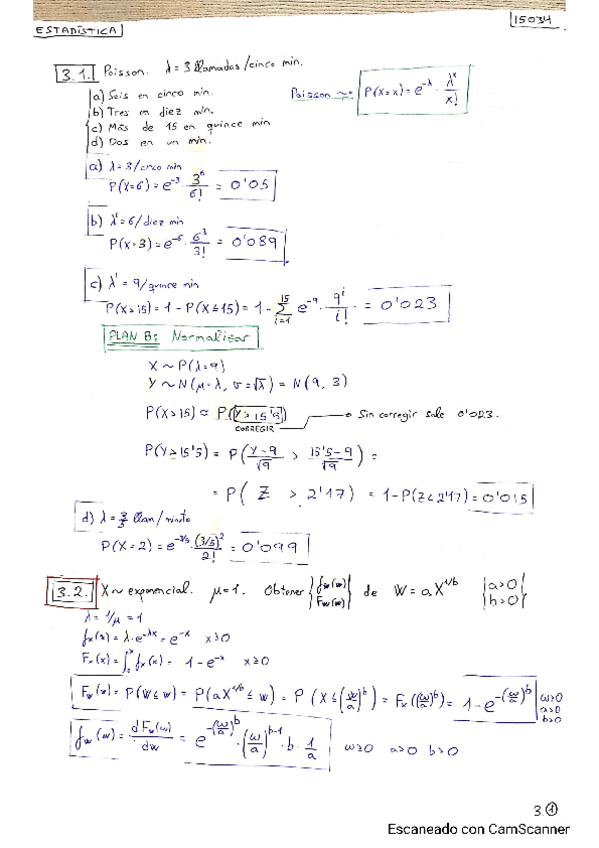 ESTADÍSTICA
15034
3.1. Poisson. λ = 3 llamadas/cinco min.
a) Seis en cinco min.
b) Tres en diez min.
c) Más de 15 en quince min
d) Dos en un min.
Poisson ~ P(X=x) = e^-λ · λ^x/x!
a) λ = 3/cinco min
P(X=6) = e^-3 · 3^6/6! = 0'05
b) λ' = 6/diez min
P(X=3) = e^-6 · 6^3/3! = 0'089
c) λ' = 9/quince min
P(X>15) = 1 - P(X≤15) = 1 - Σ_{i=1}^{15} e^-9 · 9^i/i! = 0'023
PLAN B: Normalizar
X ~ P(λ=9)
Y ~ N(μ=λ, σ=√λ) = N(9, 3)
P(X>15) ≈ P(Y≥15'5) Sin corregir sale 0'023.
CORREGIR
P(Y≥15'5) = P(Y-9/√9 > 15'5-9/√9) =
= P(Z > 2'17) = 1-P(Z<2'17) = 0'015
d) λ = 3/5 llam/minuto
P(X=2) = e^-3/5 · (3/5)^2/2! = 0'099
3.2. X ~ exponencial. μ=1. Obtener {f_W(w) F_W(w)} de W = aX^1/b {a>0 b>0}
λ = 1/μ = 1
f_X(x) = λ·e^-λx = e^-x x≥0
F_X(x) = ∫_0^x f_X(x) = 1-e^-x x≥0
F_W(w) = P(W≤w) = P(aX^1/b ≤ w) = P(X≤(w/a)^b) = F_X((w/a)^b) = 1-e^-(w/a)^b w≥0 a>0 b>0
f_W(w) = dF_W(w)/dw = e^-(w/a)^b · (w/a)^b-1 · b · 1/a w≥0 a>0 b>0
3.①
Escaneado con CamScanner